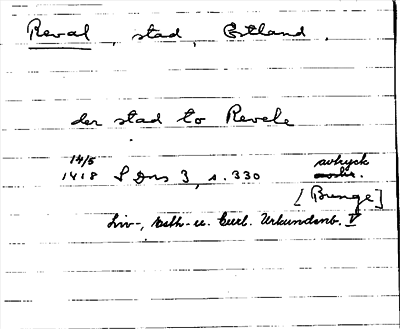 Reval, stad, Estland.
der stad to Revele
14/5 avtryck
1418 S Dns 3, s. 330
[Bunge]
Liv-, Esth- u. Curl. Urkundenb. V